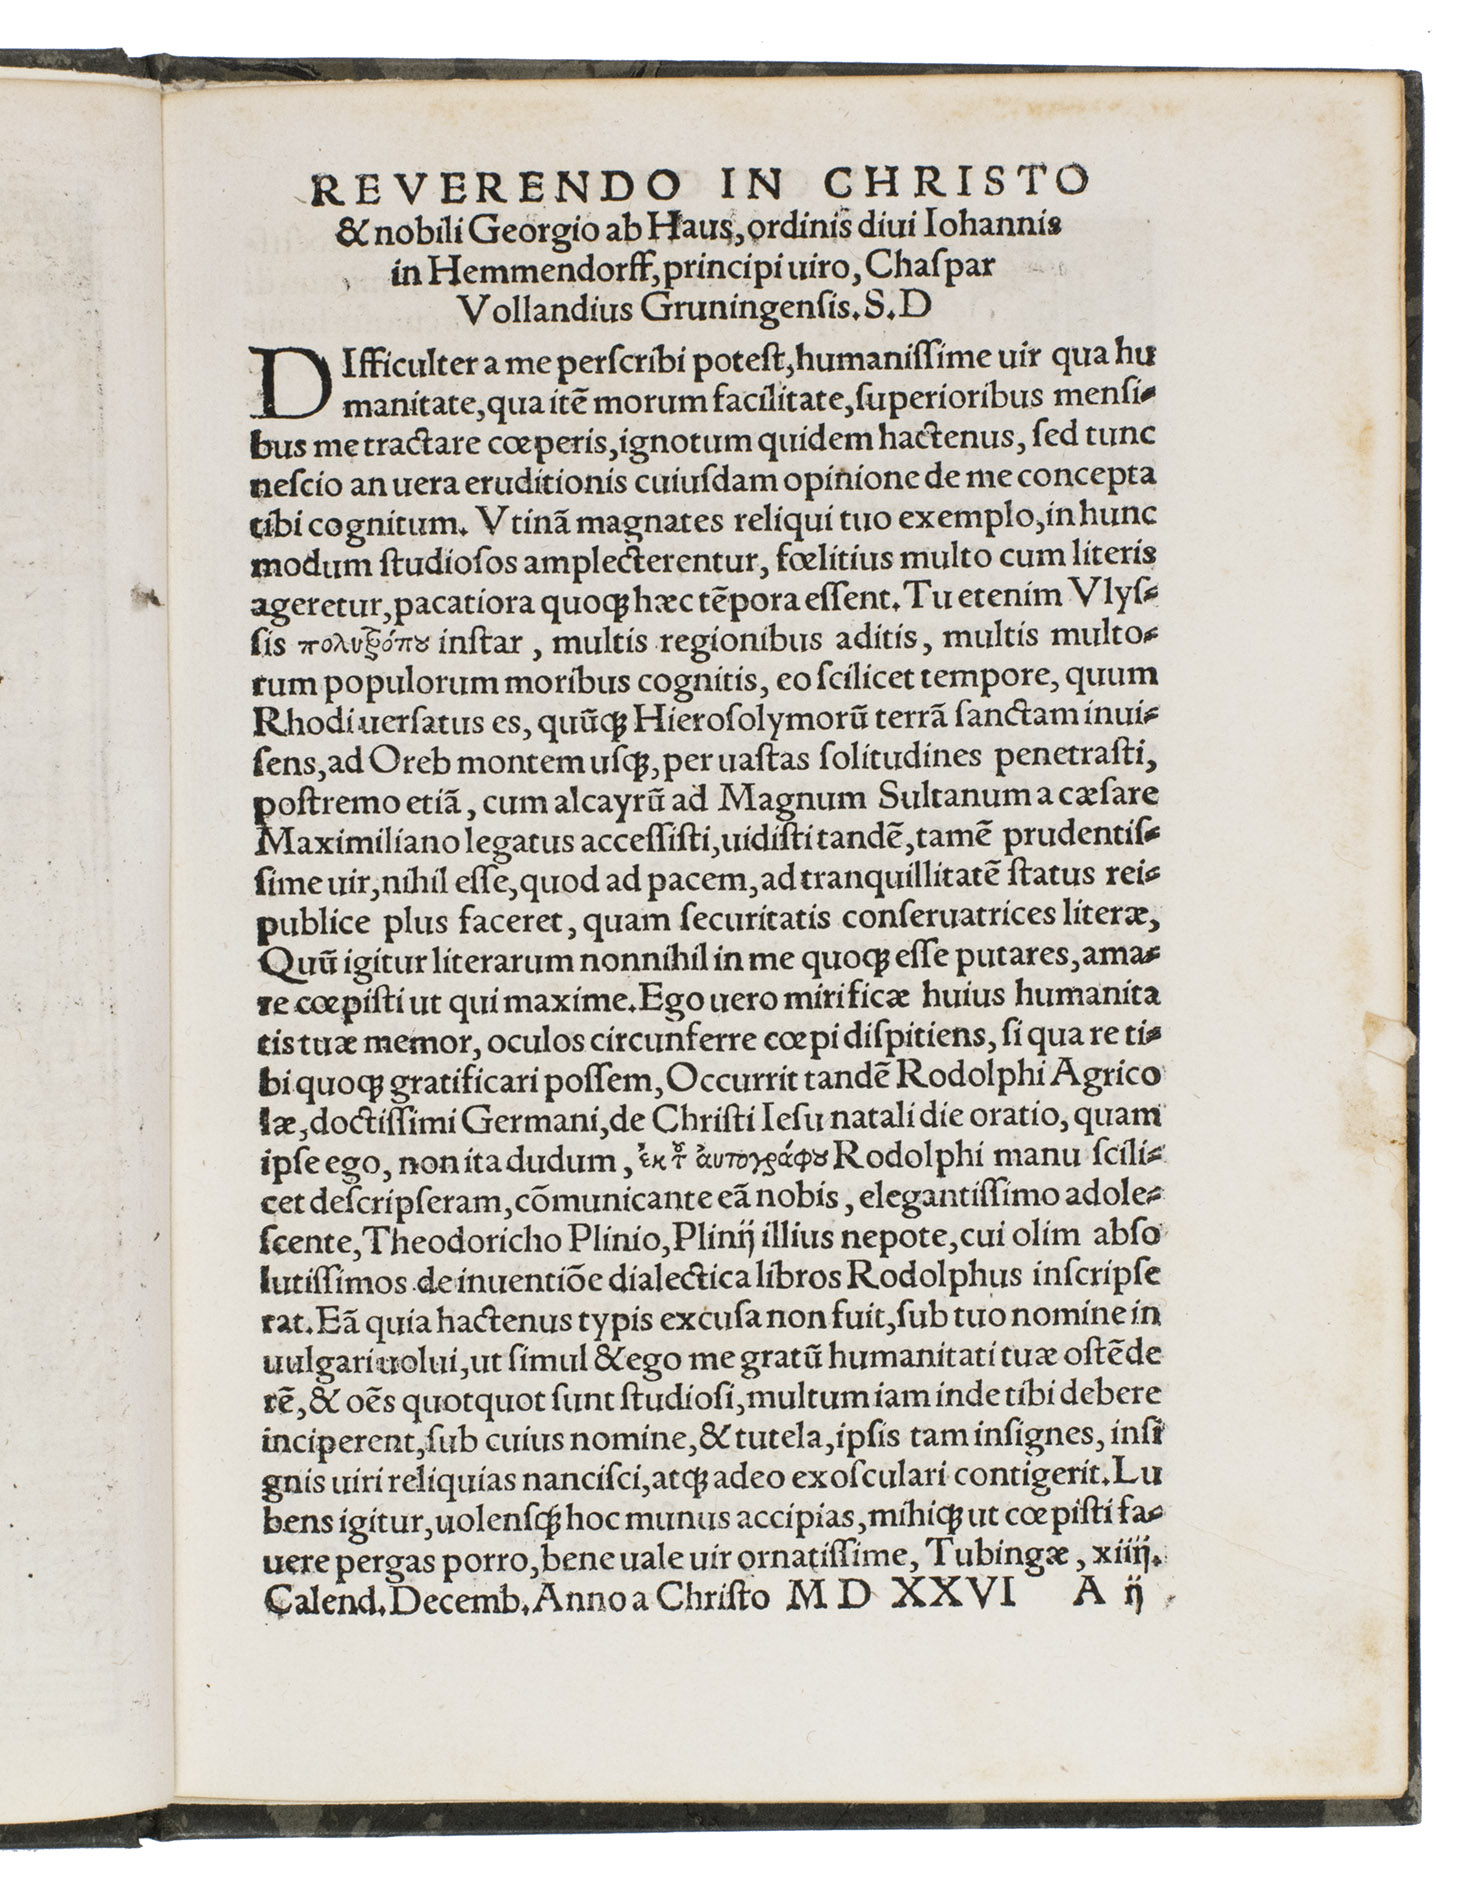 REVERENDO IN CHRISTO
& nobili Georgio ab Haus, ordinis diui Iohannis
in Hemmendorff, principi uiro, Chaſpar
Vollandius Gruningenſis. S. D
DIfficulter a me perſcribi poteſt, humaniſſime uir qua hu
manitate, qua itē morum facilitate, ſuperioribus menſi⸗
bus me tractare cœperis, ignotum quidem hactenus, ſed tunc
neſcio an uera eruditionis cuiuſdam opinione de me concepta
tibi cognitum. Vtinā magnates reliqui tuo exemplo, in hunc
modum ſtudioſos amplecterentur, fœlitius multo cum literis
ageretur, pacatiora quoqꝫ hæc tēpora eſſent. Tu etenim Vlyſ⸗
ſis πολυτρόπȣ inſtar, multis regionibus aditis, multis multo⸗
rum populorum moribus cognitis, eo ſcilicet tempore, quum
Rhodi uerſatus es, quūqꝫ Hieroſolymorū terrā ſanctam inui⸗
ſens, ad Oreb montem uſqꝫ, per uaſtas ſolitudines penetraſti,
poſtremo etiā, cum alcayrū ad Magnum Sultanum a cæſare
Maximiliano legatus acceſſiſti, uidiſti tandē, tamē prudentiſ⸗
ſime uir, nihil eſſe, quod ad pacem, ad tranquillitatē ſtatus rei⸗
publice plus faceret, quam ſecuritatis conſeruatrices literæ,
Quū igitur literarum nonnihil in me quoqꝫ eſſe putares, ama⸗
re cœpiſti ut qui maxime. Ego uero mirificæ huius humanita
tis tuæ memor, oculos circunferre cœpi diſpitiens, ſi qua re ti⸗
bi quoqꝫ gratificari poſſem, Occurrit tandē Rodolphi Agrico
læ, doctiſſimi Germani, de Chriſti Ieſu natali die oratio, quam
ipſe ego, non ita dudum, ἐκ τȣ͂ ἀυτογράφȣ Rodolphi manu ſcili⸗
cet deſcripſeram, cōmunicante eā nobis, elegantiſſimo adole⸗
ſcente, Theodoricho Plinio, Plinij illius nepote, cui olim abſo
lutiſſimos de inuentiōe dialectica libros Rodolphus inſcripſe
rat. Eā quia hactenus typis excuſa non fuit, ſub tuo nomine in
uulgari uolui, ut ſimul & ego me gratū humanitati tuæ oſtēde
rē, & oēs quotquot ſunt ſtudioſi, multum iam inde tibi debere
inciperent, ſub cuius nomine, & tutela, ipſis tam inſignes, inſi
gnis uiri reliquias nanciſci, atqꝫ adeo exoſculari contigerit. Lu
bens igitur, uolenſqꝫ hoc munus accipias, mihiqꝫ ut cœpiſti fa⸗
uere pergas porro, bene uale uir ornatiſſime, Tubingæ, xiiij.
Calend. Decemb. Anno a Chriſto M D XXVI A ij